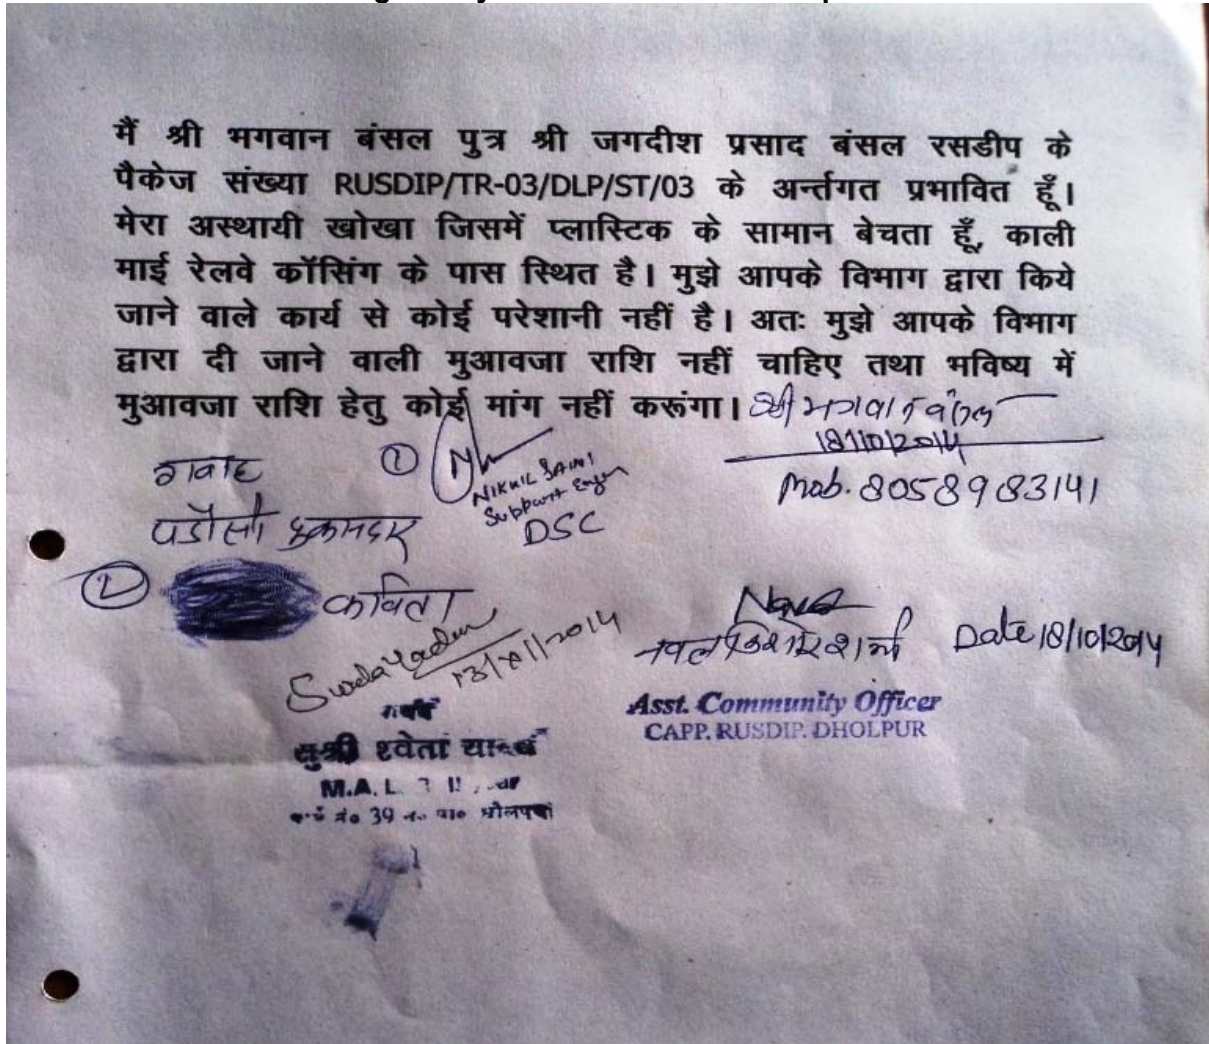 मैं श्री भगवान बंसल पुत्र श्री जगदीश प्रसाद बंसल रसडीप के
पैकेज संख्या RUSDIP/TR-03/DLP/ST/03 के अर्न्तगत प्रभावित हूँ।
मेरा अस्थायी खोखा जिसमें प्लास्टिक के सामान बेचता हूँ, काली
माई रेलवे कॉसिंग के पास स्थित है। मुझे आपके विभाग द्वारा किये
जाने वाले कार्य से कोई परेशानी नहीं है। अतः मुझे आपके विभाग
द्वारा दी जाने वाली मुआवजा राशि नहीं चाहिए तथा भविष्य में
मुआवजा राशि हेतु कोई मांग नहीं करूंगा। श्री भगवान बंसल
18/10/2014
Mob. 8058983141
गवाह
①
NIKHIL SAINI
Support Engr
DSC
पडोसी दुकानदार
② कविता
13/ /2014
नवल किशोर शर्मा Date 18/10/2014
Asst. Community Officer
CAPP. RUSDIP. DHOLPUR
सुश्री श्वेता यादव
M.A. L.
39